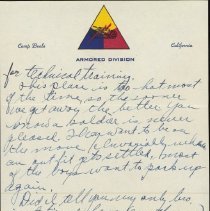 Camp Beale
California
ARMORED DIVISION
for technical training.
This place is too hot most
of the time, so the sooner
we get away the better. You
know a soldier is never
please. I'll want to be on
the move & invariably when
an outfit gets settled, most
of the boys want to pack up
again.
Did I tell you my only bro,